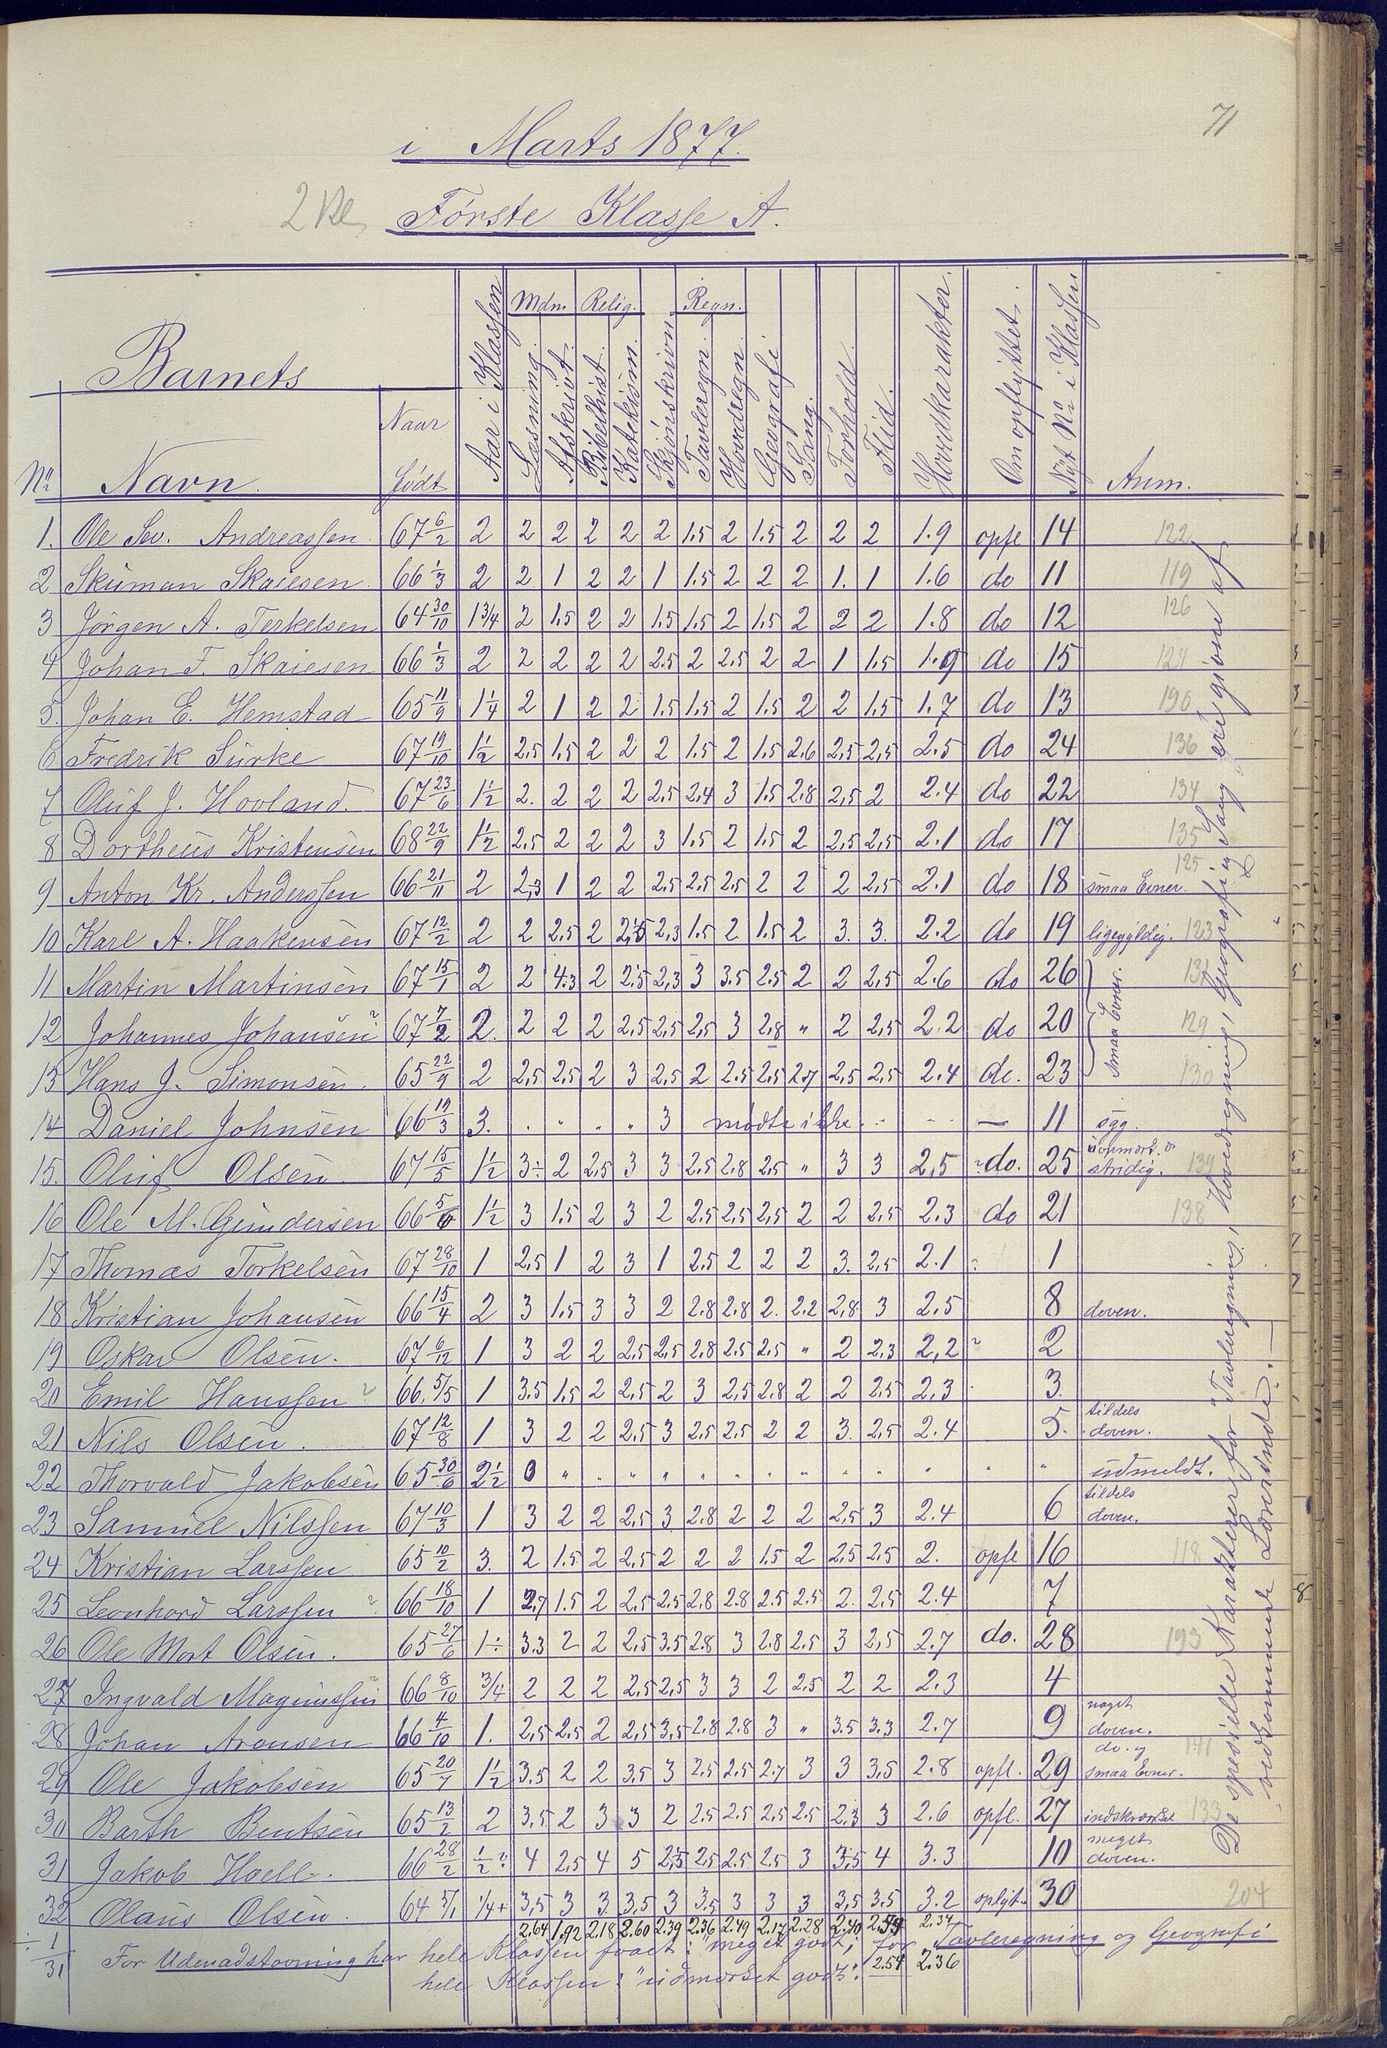 71
i Marts 1877.
2 Kl. Første Klasse A.
Barnets
Mdm. Relig. Regn.
No Navn. Naar født Aar i Klassen Læsning. Afskrivt. Bibelhist. Katekism. Skjönskrivn Tavleregn. Hovdregn. Geografi Sang. Forhold. Flid. Hovedkarakter. Om opflyttet. Nyt No i Klassen Anm.
1. Ole Sev. Andreassen. 67 6/2 2 2 2 2 2 2 1.5 2 1.5 2 2 2 1.9 opfl 14 122
2 Skuman Skaiesen. 66 1/3 2 2 1 2 2 1 1.5 2 2 2 1. 1 1.6 do 11 119
3 Jörgen A. Terkelsen 64 30/10 1 3/4 2 1.5 2 2 1.5 1.5 2 1.5 2 2 2 1.8 do 12 126
4 Johan F. Skaiesen 66 1/3 2 2 2 2 2 2.5 2 2.5 2 2 1 1.5 1.9 do 15 127
5. Johan E. Hemstad 65 11/9 1 1/4 2 1 2 2 1.5 1.5 2 1.5 2 2 1.5 1.7 do 13 196
6 Fredrik Surke 67 19/10 1 1/2 2,5 1.5 2 2 2 1.5 2 1.5 2.6 2,5 2,5 2.5 do 24 136
7 Oluf J. Hovland. 67 23/6 1 1/2 2. 2 2 2 2,5 2,4 3 1.5 2.8 2,5 2 2.4 do 22 134
8 Dortheus Kristensen 68 22/9 1 1/2 2.5 2 2 2 3 1.5 2 1.5 2 2,5 2,5 2.1 do 17 135
9 Anton Kr. Anderssen 66 21/11 2 2,3 1 2 2 2,5 2,5 2,5 2 2 2 2,5 2.1 do 18 smaa Evner. 125
10 Karl A. Haakensen 67 12/2 2 2 2,5 2 2,5 2,3 1.5 2 1.5 2 3. 3. 2.2 do 19 ligegyldig. 123
11 Martin Martinsen 67 15/1 2 2 4.3 2 2.5 2,3 3 3.5 2.5 2 2 2,5 2.6 do 26 132
12 Johannes Johansen ? 67 7/2 2. 2 2 2 2,5 2,5 2,5 3 2.8 " 2 2,5 2.2 do 20 smaa Evner. 129
13 Hans J. Simonsen. 65 22/9 2 2,5 2.5 2 3 2,5 2 2.5 2,5 2.7 2,5 2,5 2.4 do. 23 130
14 Daniel Johnsen 66 19/3 3. . " . " 3 mødte ikke — 11 syg.
15. Oluf Olsen. 67 15/5 1 1/2 3÷ 2 2,5 3 3 2.5 2.8 2,5 " 3 3 2,5 do. 25 uopmerks. o stridig. 139
16 Ole M. Gundersen 66 5/6 1 1/2 3 1.5 2 3 2 2.5 2,5 2,5 2 2 2.5 2.3 do 21 138
17 Thomas Torkelsen 67 28/10 1 2,5 1 2 3 1 2.5 2 2 2 3. 2,5 2.1 1
18 Kristian Johansen 66 15/4 2 3 1.5 3 3 2 2.8 2.8 2. 2.2 2,8 3 2.5 8 doven.
19 Oskar Olsen. 67 6/12 1 3 2 2 2,5 2,5 2.8 2.5 2,5 " 2 2,3 2,2 ? 2
20 Emil Hanssen ? 66 5/5 1 3.5 1.5 2 2,5 2 3 2,5 2.8 2 2 2,5 2,3 3.
21 Nils Olsen. 67 12/8 1 3 2 2 2.5 3 2,5 2,5 2 2 3. 2,5 2.4 5. tildels doven.
22 Thorvald Jakobsen 65 30/6 2 1/2 0 " " " " " " " " " " " " " udmeldt.
23 Samuel Nilssen 67 10/3 1 3 2 2 2,5 3 2.8 2 2 2 2,5 3 2.4 6 tildels doven.
24 Kristian Larssen 65 10/2 3. 2 1.5 2 2,5 2 2 2 1.5 2 2,5 2,5 2. opfl 16 118
25 Leonhard Larssen ? 66 18/10 1 2,7 1.5 2 2,5 2.5 2.8 2.8 2.5 2.5 2. 2.5 2.4 7
26 Ole Mart Olsen. 65 27/6 1÷ 3.3 2 2 2,5 3.5 2.8 3 2.8 2.5 3 2,5 2.7 do. 28 193
27 Ingvald Magnussen ? 66 8/10 3/4 2 2 2 2,5 2,5 3 3 2 2,5 2 2 2.3 4
28 Johan Aronsen 66 4/10 1. 2,5 2,5 2 2,5 3,5 2.8 2.8 3 " 3,5 3.3 2.7 9 noget doven.
29 Ole Jakobsen 65 20/7 1 1/2 3.5 2 2 3.5 3 2.5 2.5 2.7 3 3 3,5 2.8 opfl. 29 do. og smaa Evner. 141
30 Barth Bentsen 65 13/2 2 3,5 2 3 3 2 2.5 2.5 2,5 2.5 2,3 3 2.6 opfl. 27 indskrænket 133
31 Jakob Hoell. 66 28/2 1/2 ? 4 2,5 4 5 2,5 2,5 2.5 2.5 3 3,5 4 3.3 10 meget doven.
32 Olaus Olsen. 64 5/1 1/4+ 3,5 3 3. 3,5 3 3.5 3 3 3 3,5 3.5 3.2 oplyt. 30 204
2.64 1,92 2.18 2.60 2.39 2.36 2.49 2.17 2.28 2.40 2.59 2.34
÷ 1/31 For Udenadstavning har hele Klassen faaet: "meget godt"; for Tavleregning og Geografi
hele Klassen: "udmærket godt". 2.54 2.36
De spesielle Karakterer for Tavleregning, Hovedregning, Geografi og Sang ere givne af
vedkommende Lærerinde. —